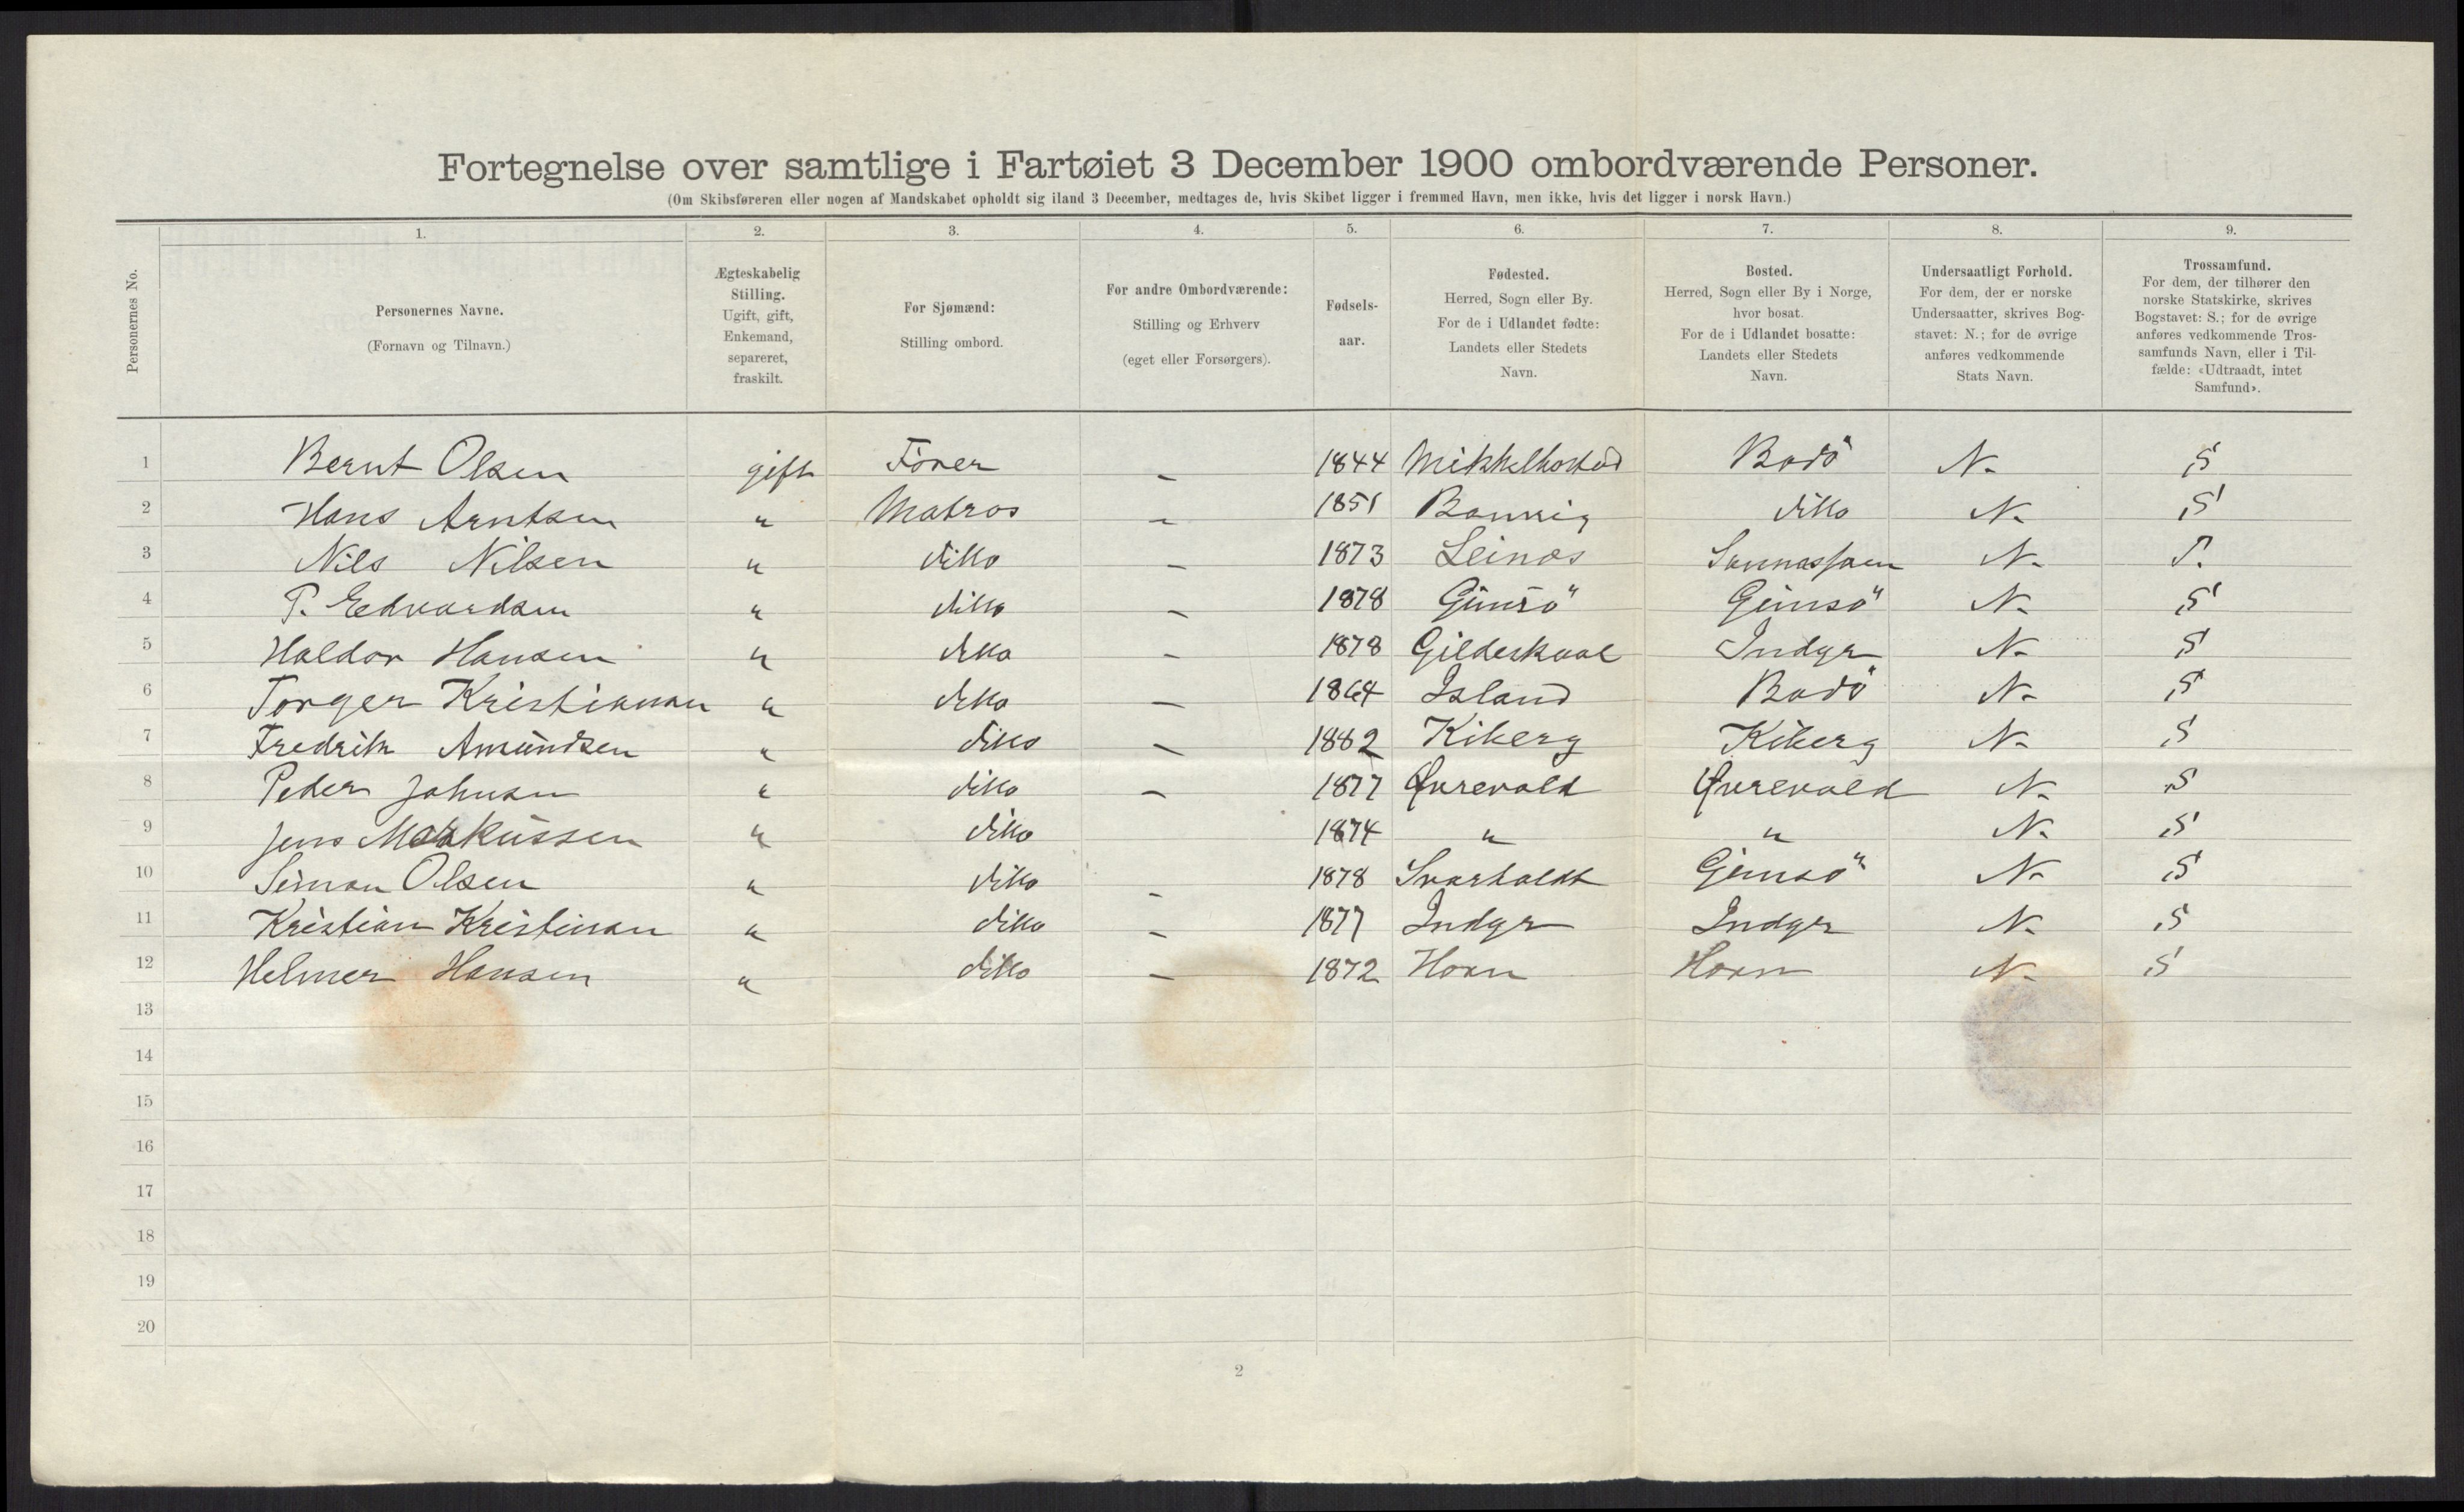 Fortegnelse over samtlige i Fartøiet 3 December 1900 ombordværende Personer.
(Om Skibsføreren eller nogen af Mandskabet opholdt sig iland 3 December, medtages de, hvis Skibet ligger i fremmed Havn, men ikke, hvis det ligger i norsk Havn.)
1. 2. 3. 4. 5. 6. 7. 8. 9.
Personernes No.
Personernes Navne.
(Fornavn og Tilnavn.)
Ægteskabelig
Stilling.
Ugift, gift,
Enkemand,
separeret,
fraskilt.
For Sjømænd:
Stilling ombord.
For andre Ombordværende:
Stilling og Erhverv
(eget eller Forsørgers).
Fødsels-
aar.
Fødested.
Herred, Sogn eller By.
For de i Udlandet fødte:
Landets eller Stedets
Navn.
Bosted.
Herred, Sogn eller By i Norge,
hvor bosat.
For de i Udlandet bosatte:
Landets eller Stedets
Navn.
Undersaatligt Forhold.
For dem, der er norske
Undersaatter, skrives Bog-
stavet: N.; for de øvrige
anføres vedkommende
Stats Navn.
Trossamfund.
For dem, der tilhører den
norske Statskirke, skrives
Bogstavet: S.; for de øvrige
anføres vedkommende Tros-
samfunds Navn, eller i Til-
fælde: «Udtraadt, intet
Samfund».
1 Bernt Olsen gift Förer - 1844 Bodö N. S
2 Hans Arntsen " Matros - 1851 ditto N. S
3 Nils Nilsen " ditto - 1873 Leinæs N. S.
4 P. Edvardsen " ditto - 1878 Gimsö Gimsö N. S
5 Haldor Hansen " ditto - 1878 Gildeskaal Indyr N. S
6 Torger Kristiansen " ditto - 1864 Island Bodö N. S
7 Fredrik Amundsen " ditto - 1882 Kiberg Kiberg N. S
8 Peder Johnsen " ditto - 1877 N. S
9 Jens Markussen " ditto 1874 " " N. S
10 Simon Olsen " ditto - 1878 Svartholdt Gimsö N. S
11 Kristian Kristiansen " ditto - 1877 Indyr Indyr N. S
12 Helmer Hansen " ditto - 1872 Horn Horn N. S
13
14
15
16
17
18
19
20
2